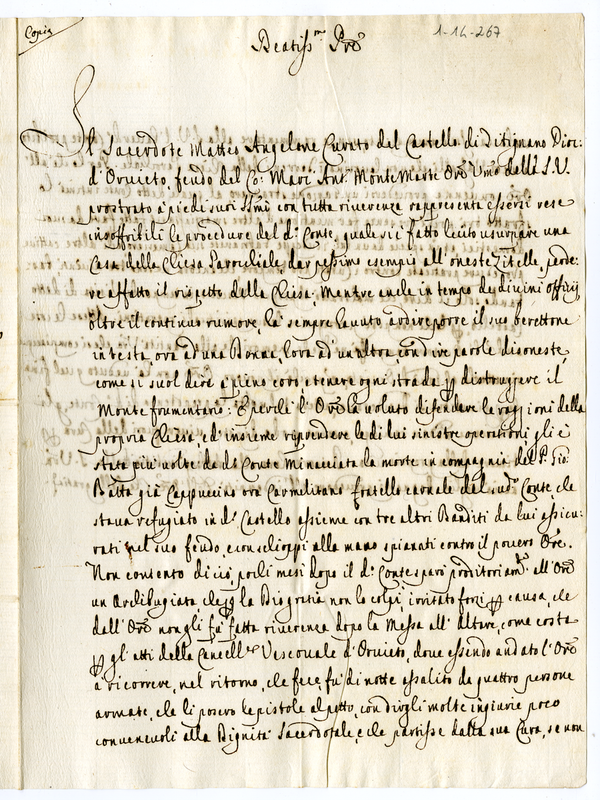 Copia
1-14-267
Beatiss.mo Pre
Il Sacerdote Matteo Angelone Curato del Castello di Titignano Dioc:
d'Orvieto, feudo del Co: Mari' Ant.o Monte Marte Ore Umo della S.V.
prostrato à piedi suoi SSmi con tutta riverenza rappresenta essersi rese
insoffribili le procedure del d.o Conte, quale si è fatto lecito usurpare una
Casa della Chiesa Parochiale, dar pessimo esempio all'oneste Zitelle, perde-
re affatto il rispetto della Chiesa, mentre anche in tempo de divini offitij
oltre il continuo rumore, hà sempre havuto ardire porre il suo berettone
in testa, ora ad una Donna, hora ad un'altra con dire parole disoneste,
come si suol dire à pieno coro, e tenere ogni strada p distruggere il
Monte frumentario: E perche l'Ore hà voluto difendere le raggioni della
propria Chiesa, ed'insieme riprendere le di lui sinistre operationi, gli è
stata più volte da d.o Conte minacciata la morte in compagnia del P. Gio:
Batta già Cappuccino ora Carmelitano fratello carnale del sud.o Conte, che
stava refugiato in d.o Castello assieme con tre altri Banditi da lui assicu-
rati nel suo feudo, e con schioppi alla mano spianati contro il povero Ore.
Non contento di ciò, pochi mesi dopo il d.o Conte sparò proditoriam.te all'Ore
un Archibugiata, che p la Dio gratia non lo colpì, irritato forsi p causa, che
dall'Ore non gli fù fatta riverenza dopo la Messa all'Altare, come costa
p gl'atti della Cancell.a Vescovale d'Orvieto, dove essendo andato l'Ore
à ricorrere, nel ritorno, che fece, fù di notte assalito da quattro persone
armate, che li posero le pistole al petto, con dirgli molte ingiurie poco
convenevoli alla Dignità Sacerdotale, e che partisse dalla sua Cura, se non